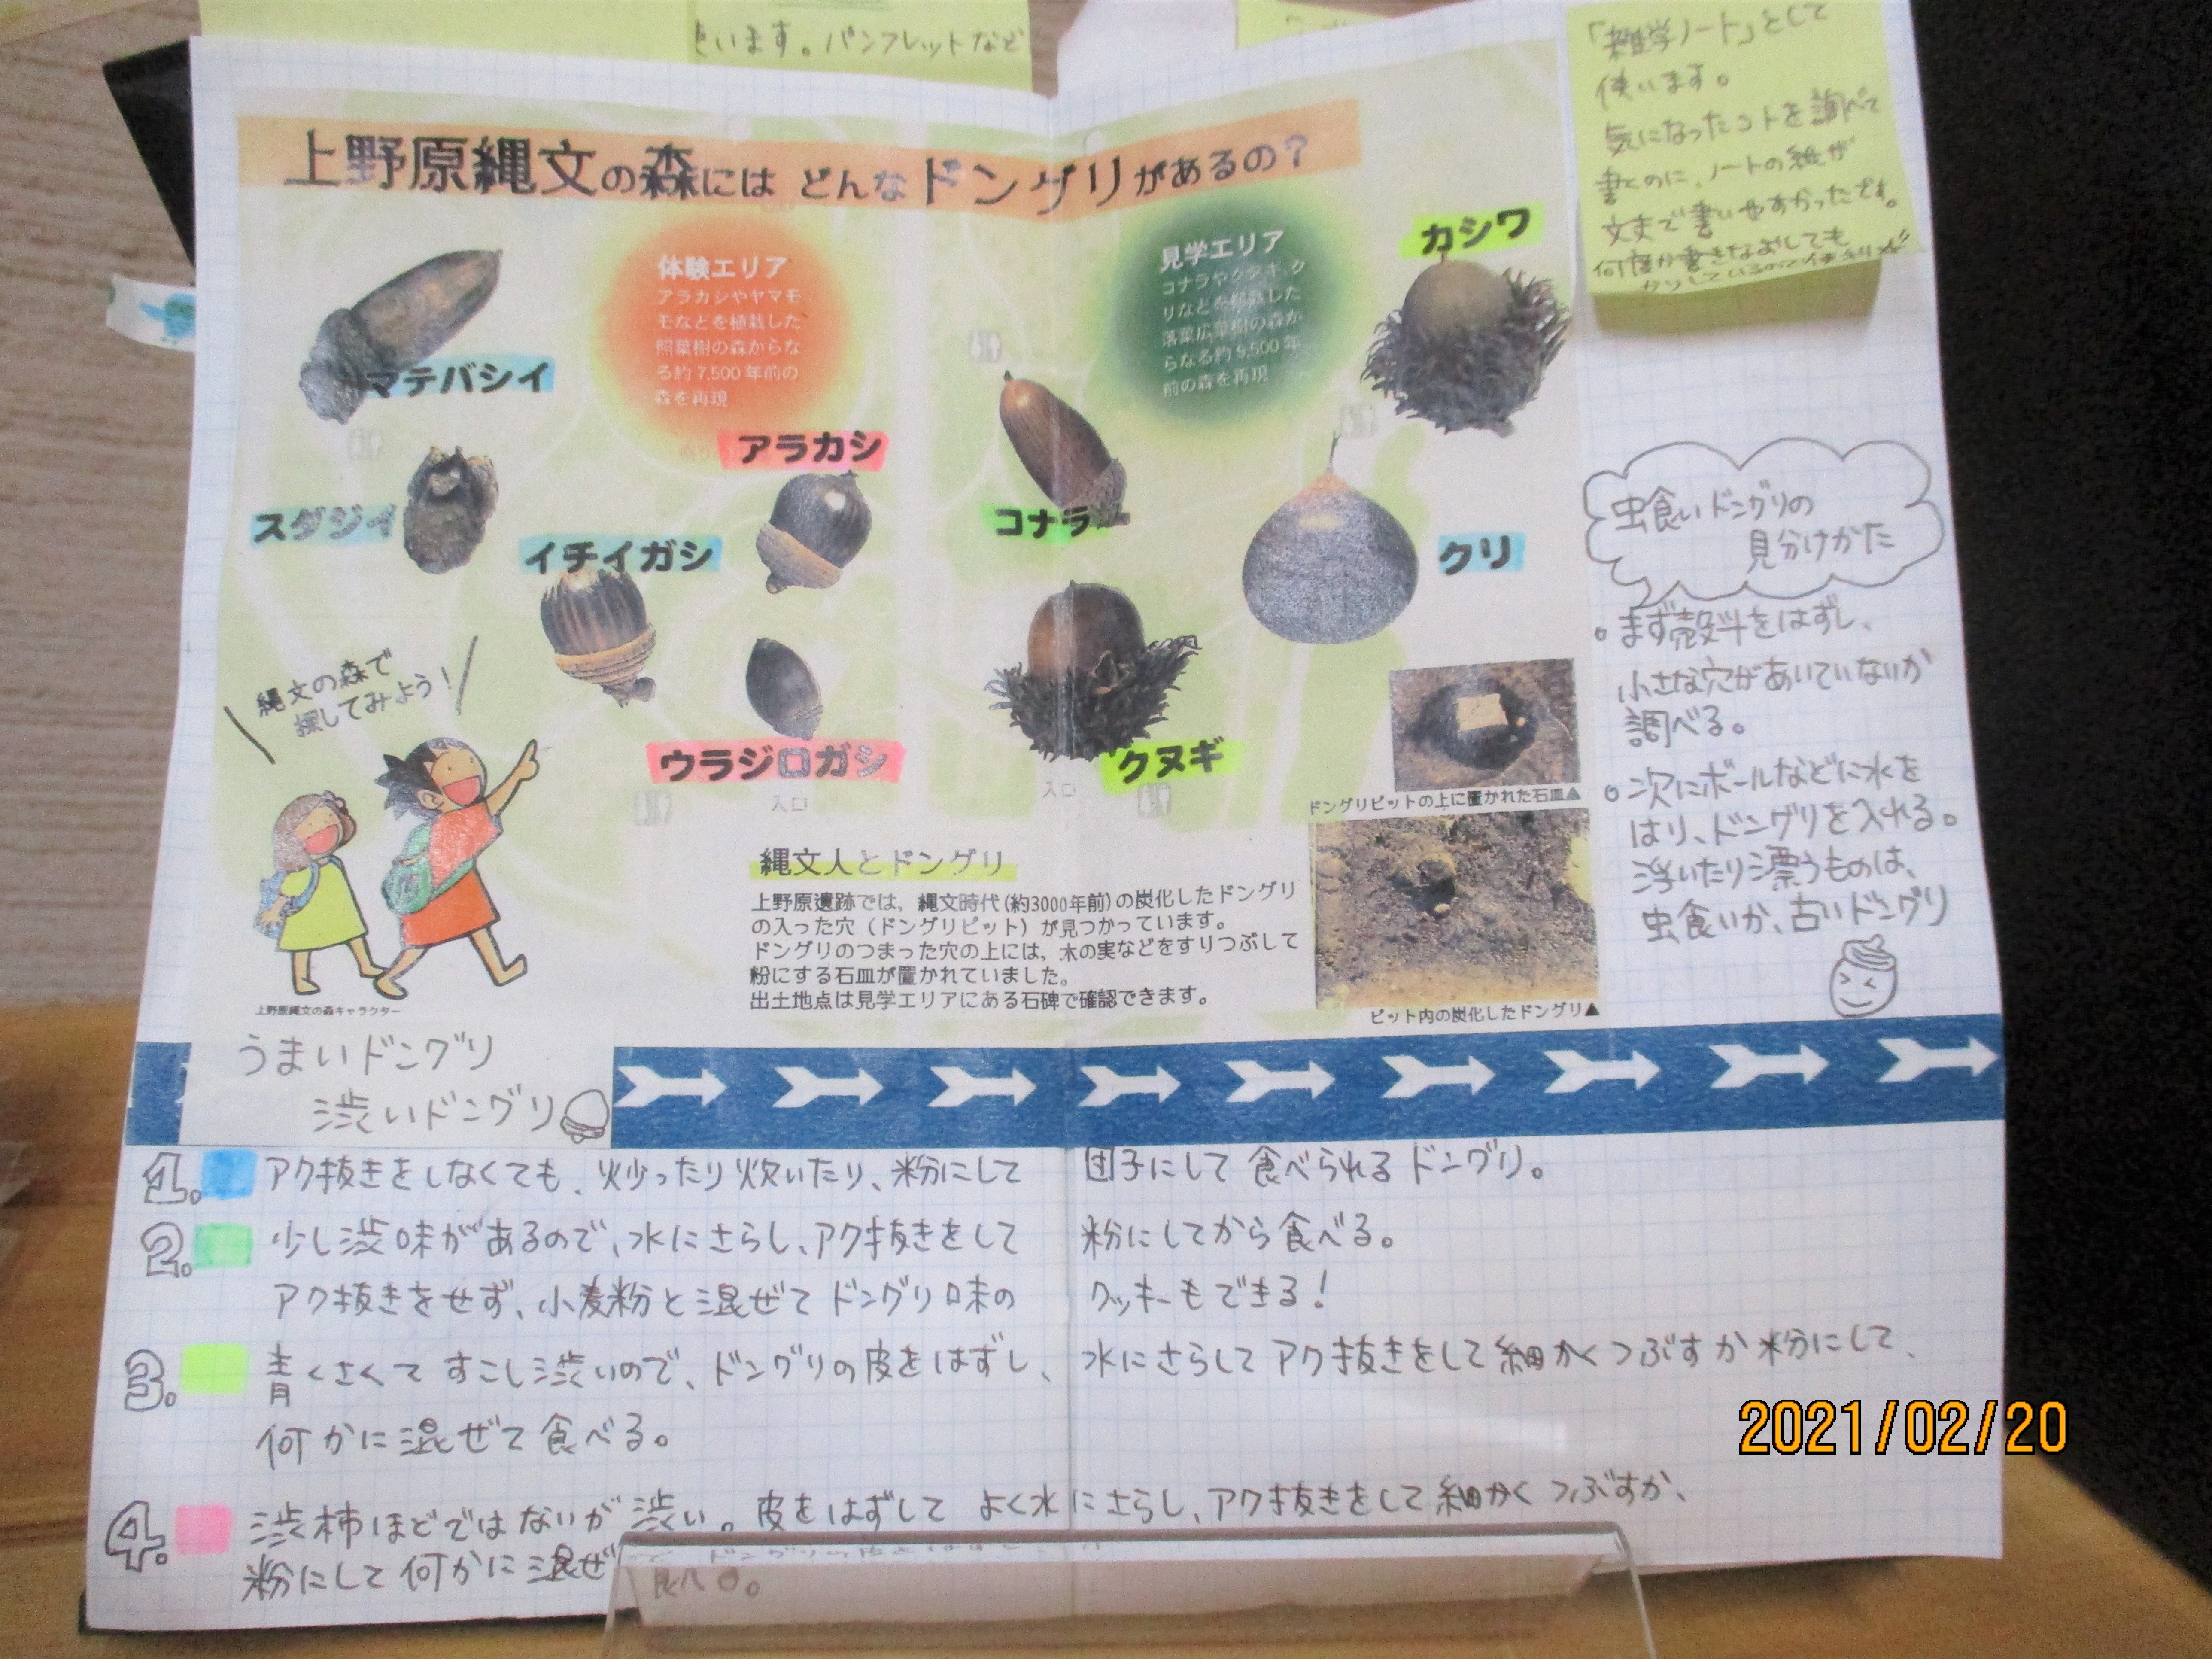 います。パンフレットなど
「雑学ノート」として
使います。
気になったコトを調べて
書くのに、ノートの紙が
丈夫で書いやすかったです。
何度か書きなおしても
上野原縄文の森には どんなドングリがあるの？
体験エリア
アラカシやヤマモ
モなどを植栽した
照葉樹の森からな
る約7,500年前の
森を再現
見学エリア
コナラやクヌギ、ク
リなどを植栽した
落葉広葉樹の森か
らなる約9,500年
前の森を再現
カシワ
マテバシイ
アラカシ
スダジイ
イチイガシ
コナラ
クリ
ウラジロガシ
クヌギ
入口
入口
縄文の森で
探してみよう！
上野原縄文の森キャラクター
縄文人とドングリ
上野原遺跡では，縄文時代(約3000年前)の炭化したドングリ
の入った穴（ドングリピット）が見つかっています。
ドングリのつまった穴の上には，木の実などをすりつぶして
粉にする石皿が置かれていました。
出土地点は見学エリアにある石碑で確認できます。
ドングリピットの上に置かれた石皿▲
ピット内の炭化したドングリ▲
虫食いドングリの
見分けかた
。まず殻斗をはずし、
小さな穴があいていないか
調べる。
。次にボールなどに水を
はり、ドングリを入れる。
浮いたり漂うものは、
虫食いか、古いドングリ
うまいドングリ
渋いドングリ
1. アク抜きをしなくても、炒ったり炊いたり、粉にして 団子にして食べられるドングリ。
2. 少し渋味があるので、水にさらし、アク抜きをして 粉にしてから食べる。
アク抜きをせず、小麦粉と混ぜてドングリ味の クッキーもできる！
3. 青くさくてすこし渋いので、ドングリの皮をはずし、水にさらしてアク抜きをして細かくつぶすか粉にして、
何かに混ぜて食べる。
4. 渋柿ほどではないが渋い。皮をはずして よく水にさらし、アク抜きをして細かくつぶすか、
粉にして何かに混ぜ
2021/02/20